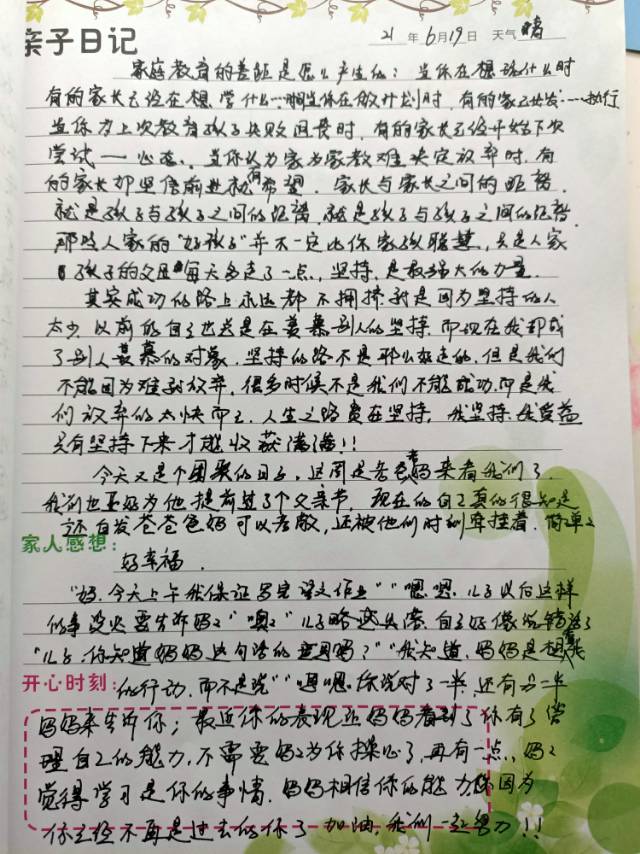 亲子日记 21年6月19日 天气晴
家庭教育的差距是怎么产生的：当你在想说什么时
有的家长已经在想学什么…当你在做计划时，有的家已出发……执行
当你为上次教育孩子失败沮丧时，有的家长已经开始下次
尝试一、当你认为家为家教难决定放弃时，有
的家长却坚信前进就有希望．家长与家长之间的距离，
就是孩子与孩子之间的距离．就是孩子与孩子之间的距离
那些人家的"好孩子"并不一定比你家孩聪慧，只是人家
孩子的父母每天多走了一点，坚持，是最强大的力量．
其实成功的路上永远都不拥挤，就是因为坚持的人
太少．以前的自己也总是在羡慕别人的坚持．而现在我却成
了别人羡慕的对象．坚持的路不是那么好走的．但是我们
不能因为难就放弃，很多时候不是我们不能成功，而是我
们放弃的太快而已．人生之路贵在坚持，我坚持，我受益
只有坚持下来才能收获满满!!
今天又是个团聚的日子，这周是爸爸妈来看我们了．
我们也正好为他提前过了个父亲节，现在的自己真的很知足
还有爸爸妈可以孝敬，还被他们时刻牵挂着．简单之
家人感想：
好幸福．
"妈，今天上午我保证写完语文作业""嗯嗯．儿子以后这样
的事没必要告诉妈妈""噢""儿子略迷失落，自己好像说错话了
"儿子，你知道妈妈这句话的意思吗？""我知道，妈妈是想看我
开心时刻：的行动．而不是说""嗯嗯．你说对了一半，还有另一半
妈妈来告诉你；最近你的表现让妈妈看到了你有了管
理自己的能力，不需要妈妈为你操心了，再有一点，妈妈
觉得学习是你的事情．妈妈相信你的能力，因为
你已经不再是过去的你了 加油，我们一起努力!!